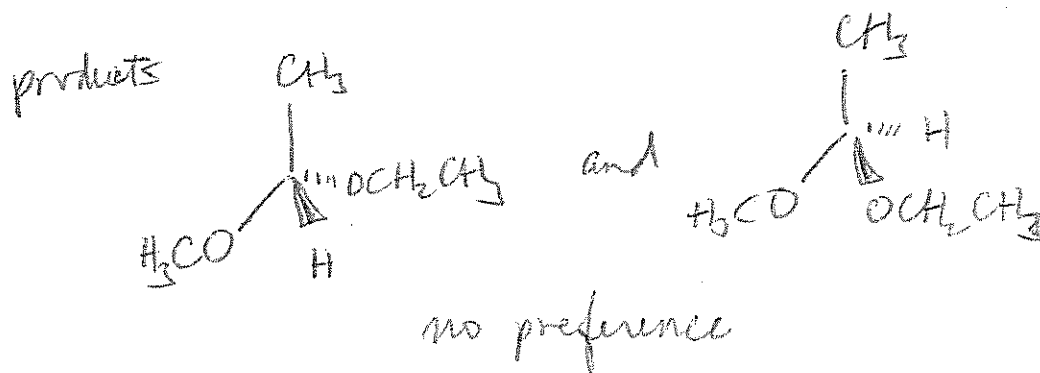 products
CH₃
H₃CO
OCH₂CH₃
H
and
CH₃
H
H₃CO
OCH₂CH₃
no preference